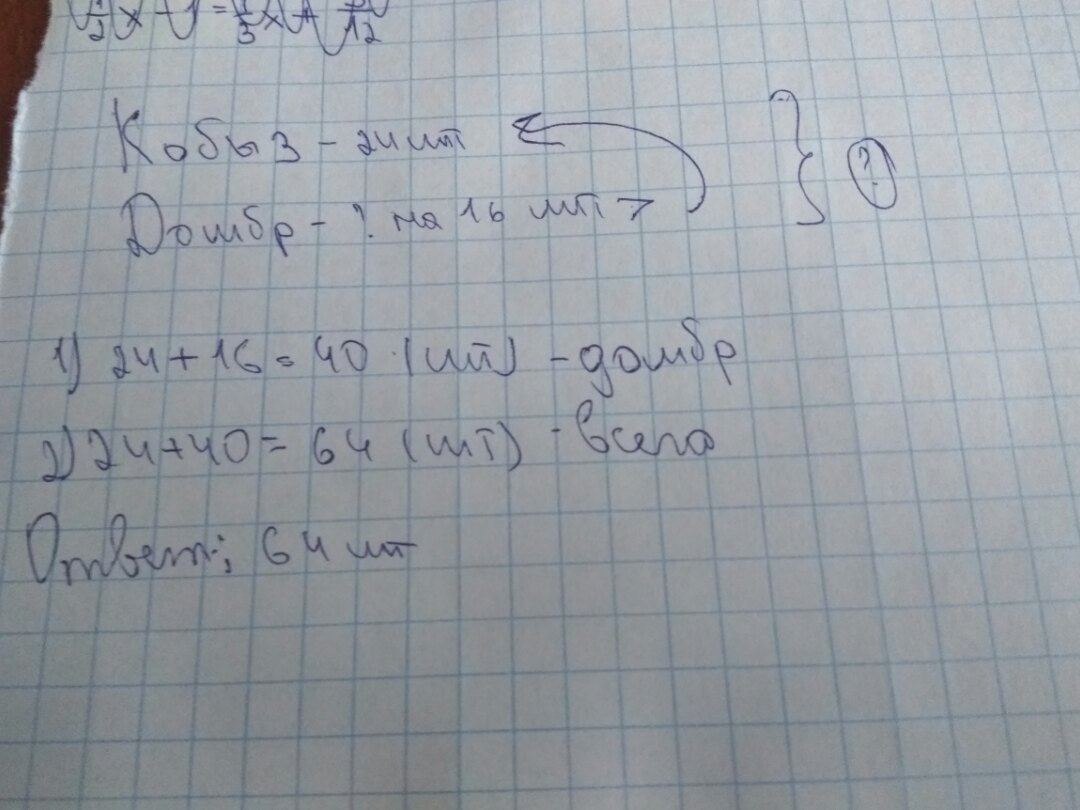 Кобыз - 24 шт
Домбр - ? на 16 шт >
?
1) 24 + 16 = 40 (шт) - домбр
2) 24 + 40 = 64 (шт) - всего
Ответ: 64 шт